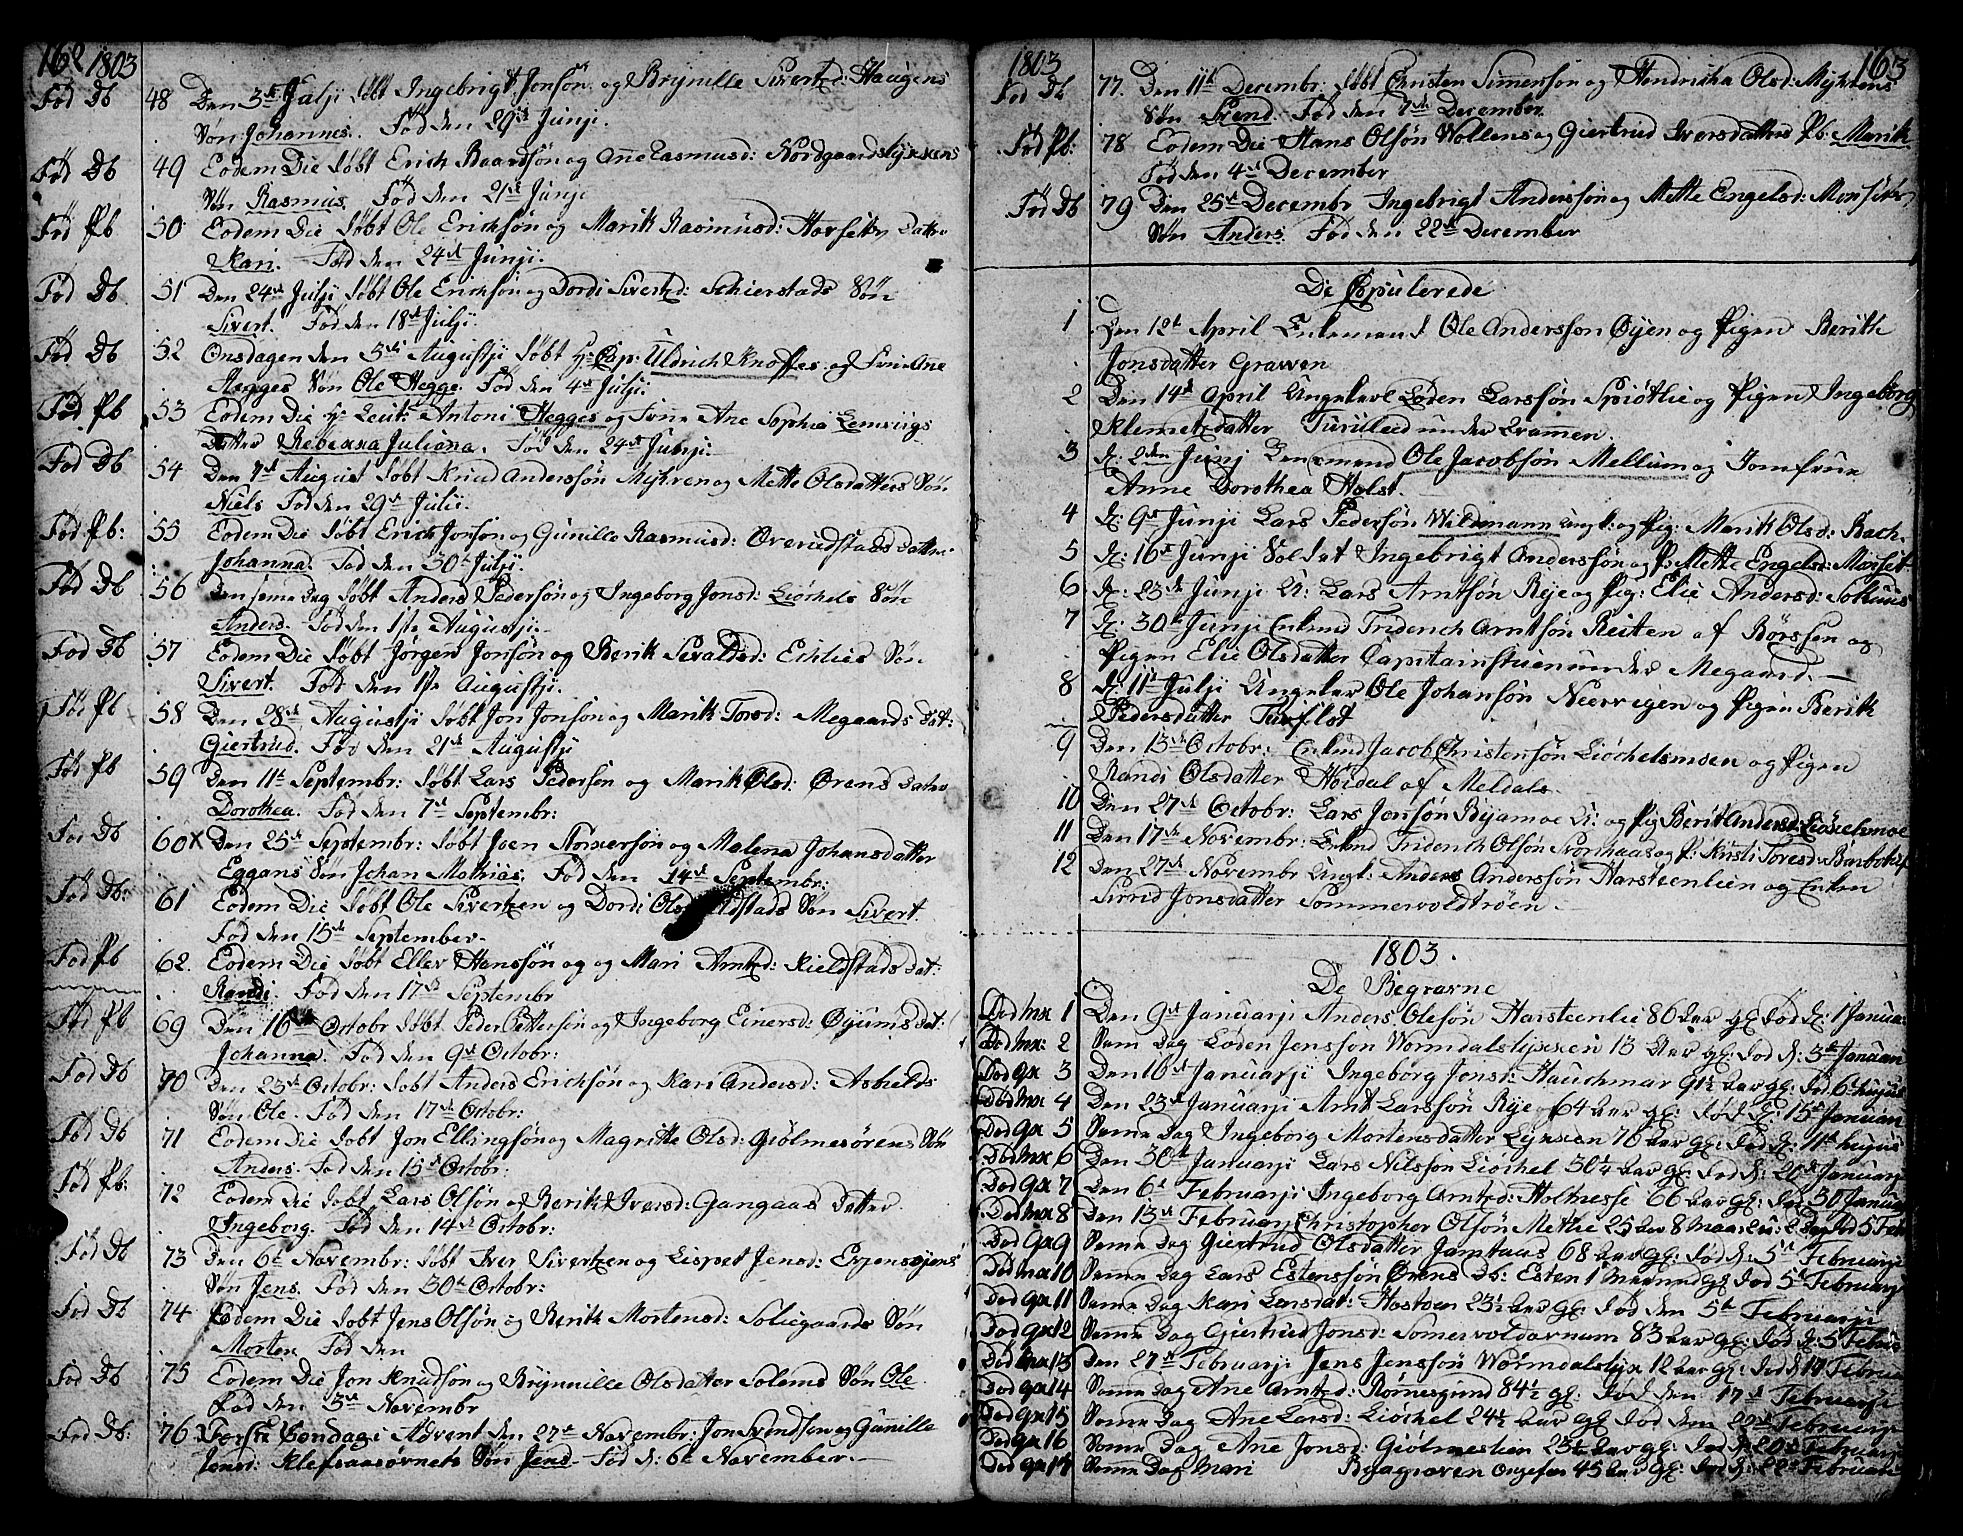 162 1803
Fød Db 48 Den 3de Julji døbt Ingebrigt Jonsøn og Brynille Sivertsd: Haugens
Søn Johannes. Fød den 29de Junji.
Fød Db 49 Eodem Die døbt Erich Baardsøn og Ane Rasmusd: Nordgaards
Søn Rasmus. Fød den 21de Junji
Fød Pb 50 Eodem Die døbt Ole Erichsøn og Marit Rasmusd: Datter
Kari. Fød den 24de Junji.
Fød Db 51 Den 24de Julji døbt Ole Erichsøn og Dordi Sivertsd: Schierstads Søn
Sivert. Fød den 18de Julji.
Fød Db 52 Onsdagen den Augustji døbt Hr Cap: Uldrich Knoffes og Fru Ane
Hegges Søn Ole Hegge. Fød den 4de Julji.
Fød Pb 53 Eodem Die Hr Leut: Antoni Hegges og Frue Ane Sophia Lemvigs
Datter Rebekka Juliana. Fød den 24de Junji.
Fød Db 54 Den 7de August døbt Knud Andersøn Myhren og Mette Olsdatters Søn
Niels Fød den 29de Julii.
Fød Pb: 55 Eodem Die døbt Erich Jonsøn og Gunille Rasmusd: Datter
Johanna. Fød den 30te Julji.
Fød Db 56 Den samme Dag døbt Anders Pedersøn og Ingeborg Jonsd: Liøchels Søn
Anders. Fød den 1ste Augustji.
Fød Db 57 Eodem Die døbt Jørgen Jonsøn og Berit Sivaldsd: Echlies Søn
Sivert. Fød den 1ste Augustji.
Fød Pb 58 Den 28de Augustji døbt Jon Jonsøn og Marit Torsd: Megaards Dat:
Giertrud. Fød den 21de Augustji
Fød Pb 59 Den 11te Septembr: døbt Lars Pedersøn og Marit Olsd: Ørens Datter
Dorothea. Fød den 7de Septembr:
Fød Db 60 x Den 25de Septembr: døbt Joen og Malena Johansdatter
Eggans Søn Johan Mathias. Fød den 14de Septembr:
Fød Db: 61 Eodem Die døbt Ole Sivertzen og Dordi Søn Sivert.
Fød den 15de September.
Fød Pb 62. Eodem Die døbt Eller Hansøn og og Mari Arntsd: Kieldstads Dat:
Randi. Fød den 17de Septembr
Fød Pb 69 Den 16de Octobr døbt Peder Pettersøn og Ingeborg Einersd: Øyums Dat:
Johanna. Fød den 9de Octobr:
Fød Db 70 Den 23de Octobr: døbt Anders Erichsøn og Kari Andersd:
Søn Ole. Fød den 17de Octobr:
Fød Db 71 Eodem Die døbt Jon Ellingsøn og Magritte Olsd: Giølmesørens Søn
Anders. Fød den 15de Octobr:
Fød Pb: 72 Eodem Die døbt Lars Olsøn og Berit Iversd: Gangaas Datter
Ingeborg. Fød den 14de Octobr:
Fød Db 73 Den 6te Novembr: døbt Iver Sivertzen og Lispet Jensd:
Søn Jens. Fød den 30te Octobr:
Fød Db 74 Eodem Die døbt Jens Olsøn og Berit Mortensd: Soliegaards Søn
Morten Fød den
Fød Db 75 Eodem Die Jon Knudsøn og Brynnille Olsdatter Solems Søn Ole.
Fød den 3de Novembr
Fød Db: 76 Første Søndag i Advent den 27de Novembr: Jon Svendsøn og Gunnille
Jensd: Søn Jens. Fød d: 6te November.
1803 163
Fød Db 77. Den 11te Decembr: døbt Christen Simensøn og Hendricka Olsd: Myhrens
Søn Svend. Fød den 7de December.
Fød Pb: 78 Eodem Die Hans Olsøn Wollens og Giertrud Iversdatters Pb: Marit
Fød den 4de December
Fød Db 79 Den 25de Decembr Ingebrigt Andersøn og Mette Engelsd: Morsets
Søn Anders. Fød den 22de December
De Copulerede
1 Den 12te April Enkemand Ole Andersøn Øyen og Pigen Berith
Jonsdatter Grawen
2 Den 14de April Ungkarl Loden Larsøn Spiøtlie og Pigen Ingeborg
Klemetzdatter under Krammen.
3 D: 2den Junj Ole Jacobsøn Mellum og Jomfrue
Anne Dorothea Holst.
4 D: 9de Junji Lars Pedersøn Wildmann Ungk: og Pig: Marit Olsd: Bach.
5 D: 16de Junji Soldat Ingebrigt Andersøn og P: Mette Engelsd: Morset.
6 D: 23de Junji U: Lars Arntsøn Rye og Pig: Elie Andersd: Solhuus
7 D: 30te Junji Enkmd Friderich Arntsøn Reiten af Børssen og
Pigen Elie Olsdatter Capitainstuen under Megaard.
8 D: 11te Julji Ungkarl Ole Johansøn Neervigen og Pigen Berit
Pedersdatter
9 Den 13de Octobr: Enkmd Jacob Christensøn Liøchelsmoen og Pigen
Randi Olsdatter Høidal af Meldals.
10 Den 27de Octobr: Lars Jonsøn Byamoe U: og Pig Berit Andersd: Liøchelmoe
11 Den 17de Novembr: Enkmd Friderich Olsøn og P: Kristi Toresd:
12 Den 27de Novembr Ungk: Anders Andersøn Harsteenlien og Enken
Sirrid Jonsdatter Sommervoldtrøen.
1803.
De Begravne
Død Mx 1 Den 9de Januarji Anders Olesøn Harsteenlie 86 Aar gl: Død d: 1 Januar
Død Mx: 2 Samme Dag Loden Jensøn 13 Aar gl: Død d: 3de Januari
Død Qx 3 Den 16de Januarji Ingeborg Jonsd: Hauchmar 91½ Aar gl: Død 6te hujus
Død Mx 4 Den 23de Januarji Arnt Larssøn Rye 64 Aar gl: Død d: 15de Januari
Død Qx 5 Samme Dag Ingeborg Mortensdatter 76 Aar gl: Død d: 11te hujus
Død Mx 6 Den 30te Januarji Lars Nilsøn Liøchel 30½ Aar gl: Død d: 20de Januarji
Død Qx 7 Den 6te Februarji Ingeborg Arntsd: Holtnesse 66 Aar gl: Død 30 Januar
Død Mx 8 Den 13de Februarji Christopher Olsøn Metlie 25 Aar 8 Maan: Død d 5 Feb
Død Qx 9 Samme Dag Giertrud Olsdatter Jamtaas 68 Aar gl: Død d: 5te Februarji
Død Mx 10 Samme Dag Lars Estensøn Ørens Db: Esten 1 Maaned gl Død 5te Februarji
Død Qx 11 Samme Dag Kari Larsdat: 23½ Aar gl: Død den 5te Februarji
Død Qx 12 Samme Dag Giertrud Jonsd: 83 Aar gl: Død d: 5 Februa
Død Mx 13 Den 27de Februarji Jens Jensøn 12 Aar gl: Død d Februar
Død Qx 14 Samme Dag Ane Arntsd: 84½ gl: Død den 17de Februarji
Død Qx 15 Samme Dag Ane Larsd: Liøchel 24½ Aar gl Død den 22de Februarji
Død Qx 16 Samme Dag Ane Jonsd: Giølmeslien 23½ Aar gl: Død d: Februarji
Død Qx 17 Samme Dag Mari Byagraven ongefær 45 Aar gl: Død d: 22de Februarii